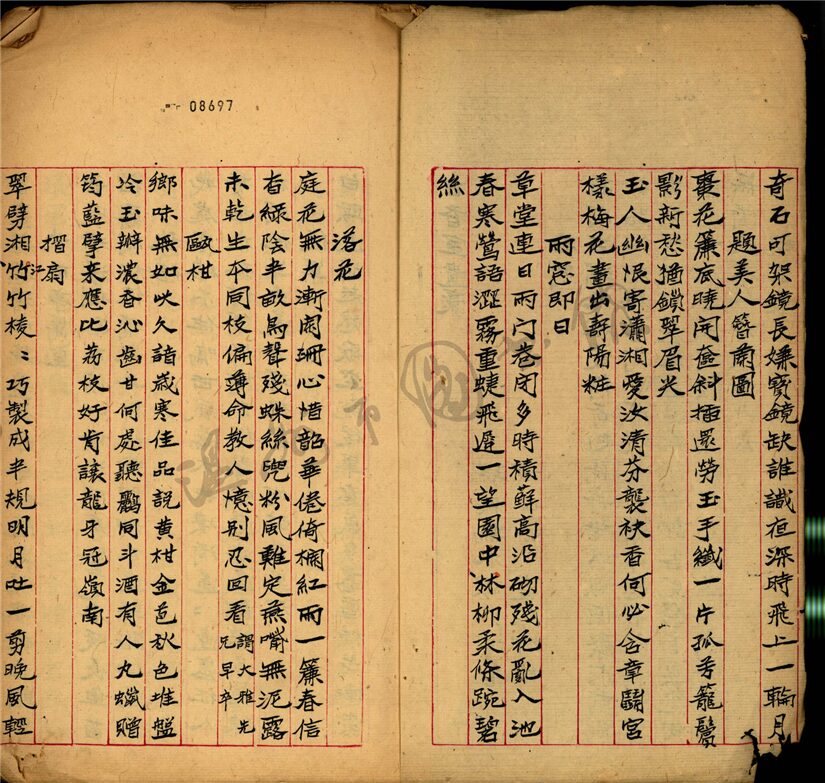 奇石可架鏡長嫌寶鏡缺誰識夜深時飛上一輪月
題美人簪蘭圖
棗花簾底曉開奩斜插還勞玉手纖一片孤芳籠鬢
影新愁猶鎖翠眉尖
玉人幽恨寄瀟湘愛汝清芬襲袂香何必含章鬪宮
樣梅花畫出壽陽粧
雨窓即日
草堂連日雨門巷閉多時積蘚高沿砌殘花亂入池
春寒鶯語澀霧重蜨飛遲一望園中柳柔條踠碧
絲
08697
落花
庭花無力漸闌珊心惜韶華倦倚欄紅雨一簾春信
杳綠陰半畝鳥聲殘蛛絲兜粉風難定燕嘴無泥露
未乾生本同枝偏薄命教人憶別忍回看 謂大雅先兄早卒
甌柑
鄉味無如此久諳歲寒佳品說黃柑金苞秋色堆盤
冷玉瓣濃香沁齒甘何處聽鸝同斗酒有人丸蠟贈
筠藍擘來應比荔枝好肯讓龍牙冠嶺南
摺扇
翠劈湘江竹竹棱〻巧製成半規明月吐一剪晚風輕
溫州市圖